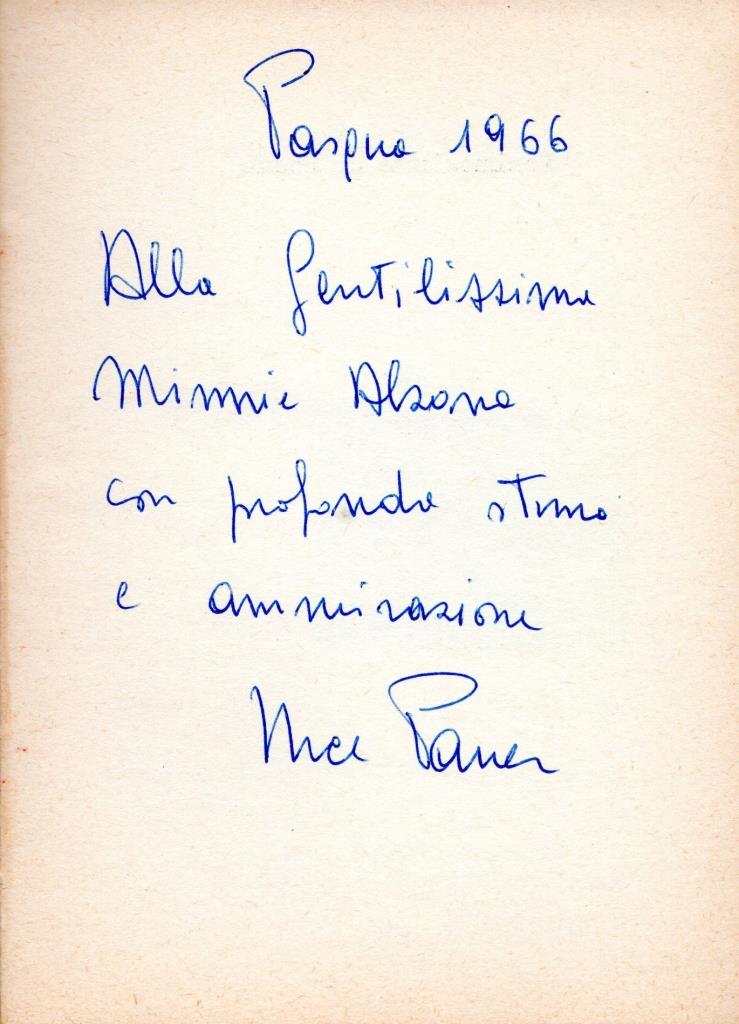 Pasqua 1966
Alla Gentilissima
Minnie Alzona
con profonda stima
e ammirazione